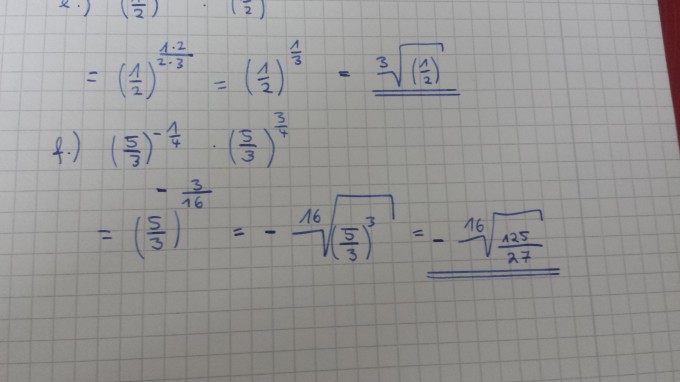 e.) (1/2) · (1/2)
= (1/2)^(1·2/2·3) = (1/2)^(1/3) = ³√(1/2)
f.) (5/3)^(-1/4) · (5/3)^(3/4)
= (5/3)^(-3/16) = - ¹⁶√(5/3)³ = - ¹⁶√125/27